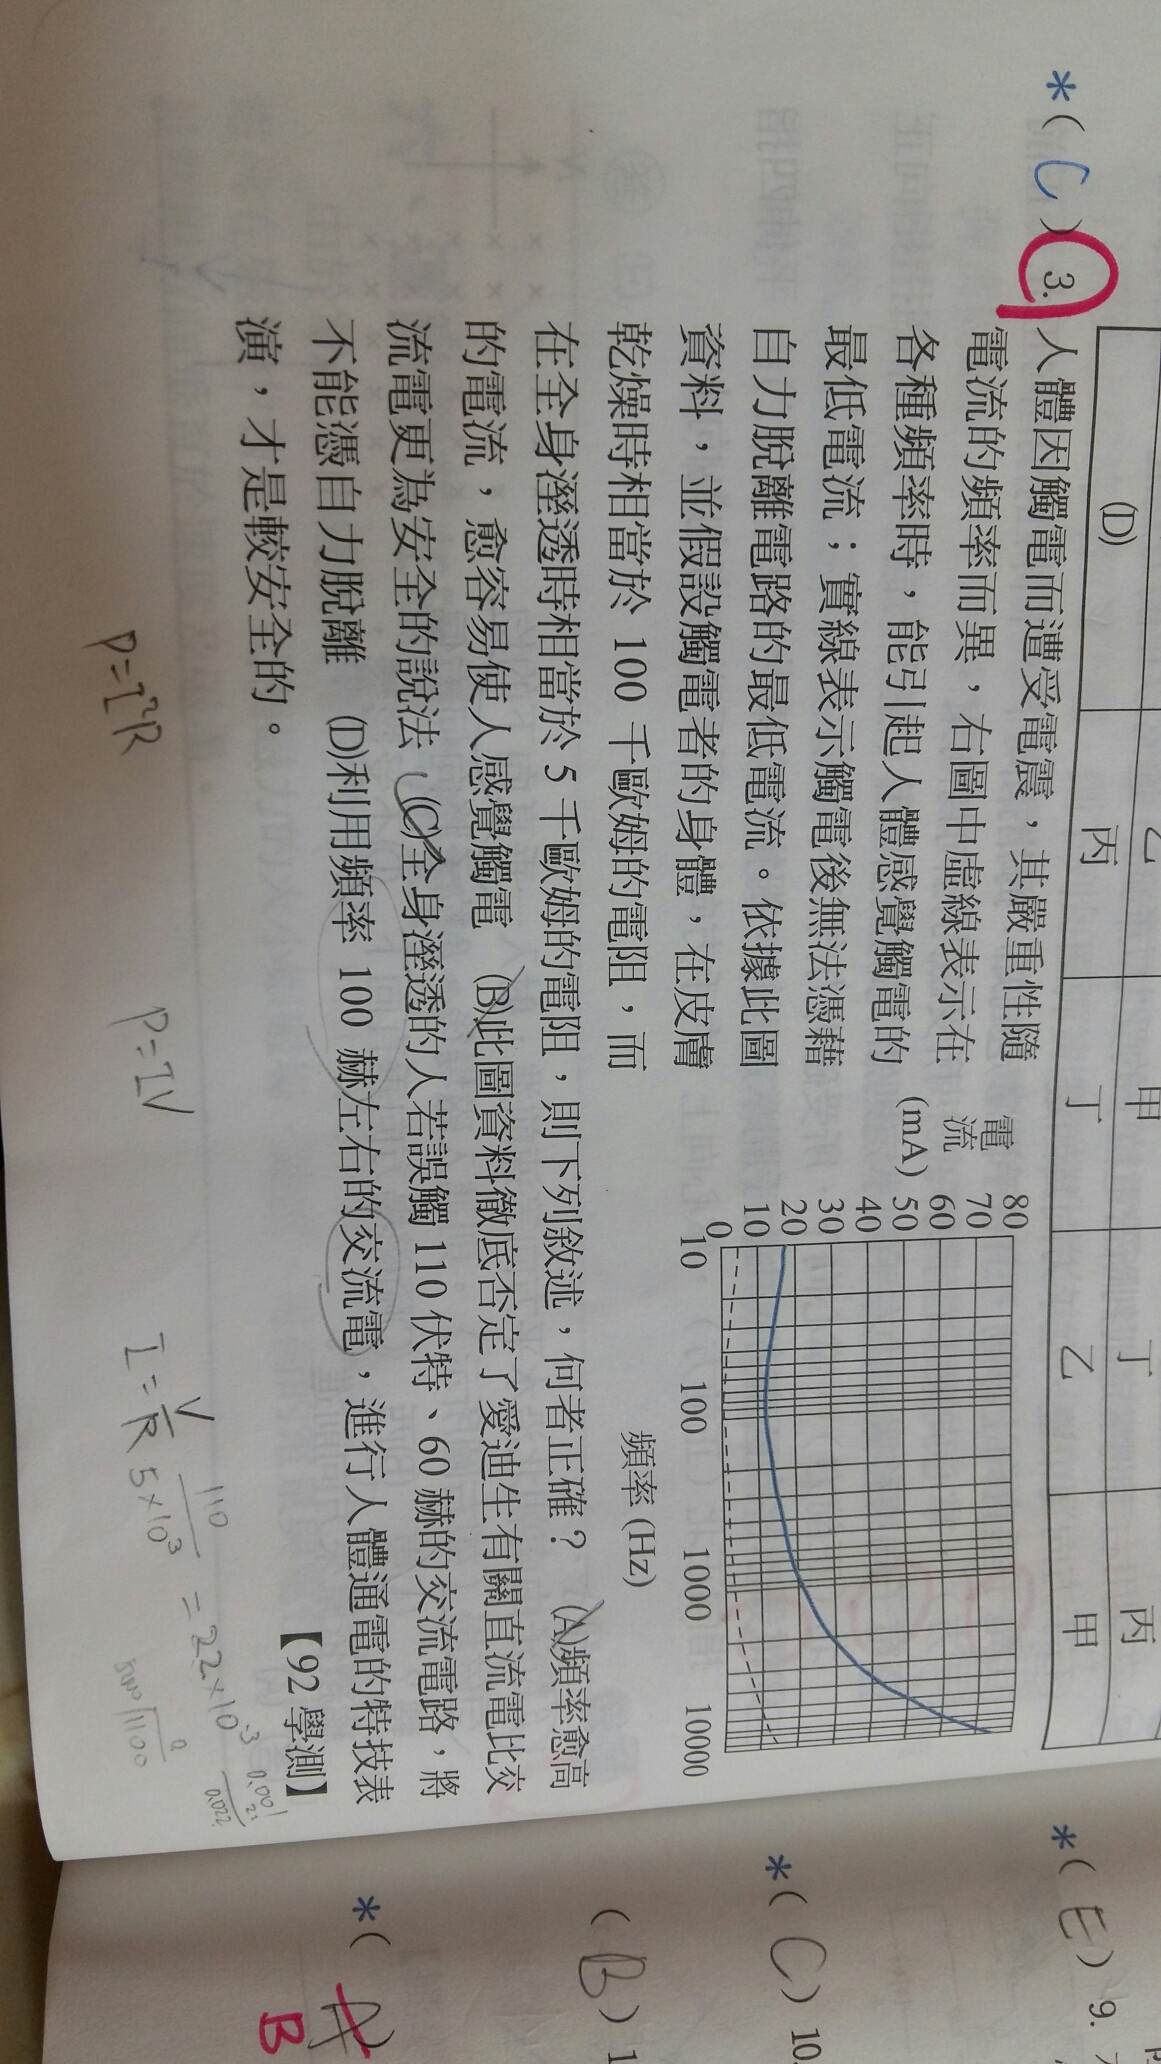 乙 甲 丁 丙
(D) 丙 丁 乙 甲
*( C ) 3. 人體因觸電而遭受電震，其嚴重性隨
電流的頻率而異，右圖中虛線表示在
各種頻率時，能引起人體感覺觸電的
最低電流；實線表示觸電後無法憑藉
自力脫離電路的最低電流。依據此圖
資料，並假設觸電者的身體，在皮膚
乾燥時相當於 100 千歐姆的電阻，而
在全身溼透時相當於 5 千歐姆的電阻，則下列敘述，何者正確？ (A)頻率愈高
的電流，愈容易使人感覺觸電 (B)此圖資料徹底否定了愛迪生有關直流電比交
流電更為安全的說法 (C)全身溼透的人若誤觸 110 伏特、60 赫的交流電路，將
不能憑自力脫離 (D)利用頻率 100 赫左右的交流電，進行人體通電的特技表
演，才是較安全的。
【92 學測】
電流
(mA)
80
70
60
50
40
30
20
10
0
10 100 1000 10000
頻率 (Hz)
P=I²R
P=IV
I=V/R 110/5×10³ = 22×10⁻³
0.001
22
0.022
5000 1100
*( E ) 9.
*( C ) 10.
( B ) 1
*( A )
B